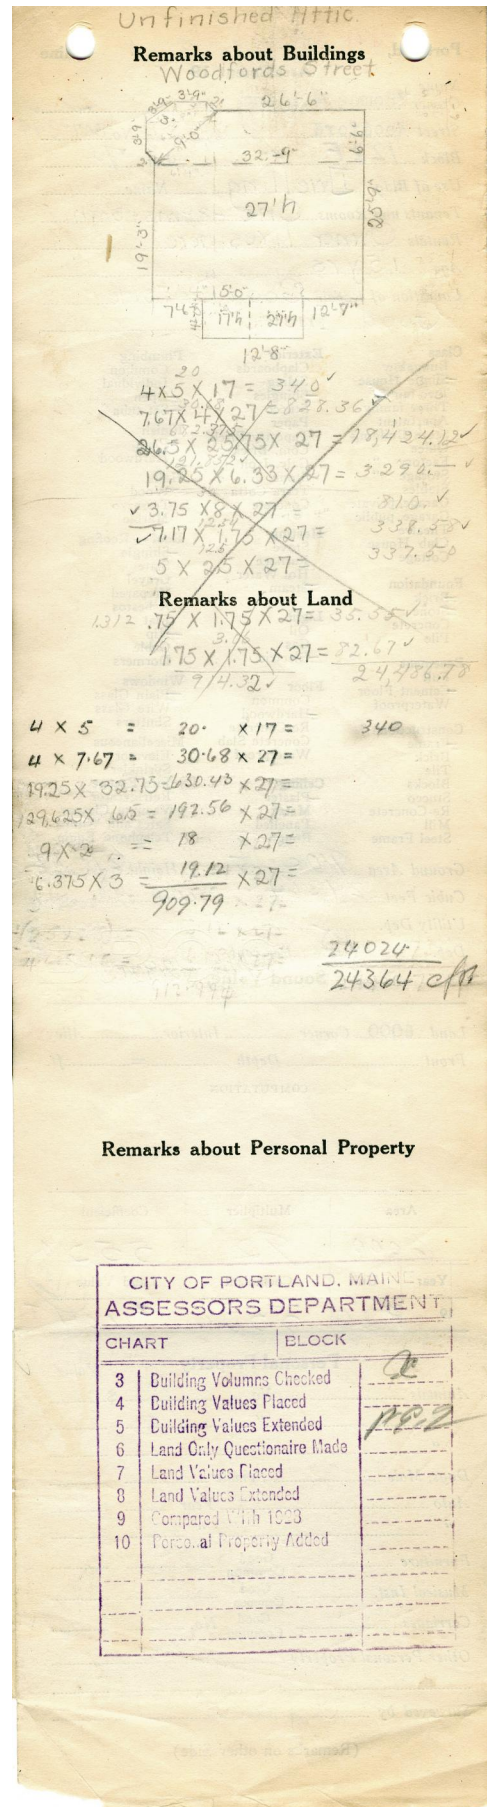 Unfinished Attic.
Remarks about Buildings
Woodfords Street
3'-9"
26'-6"
3'-9"
9'-0"
32'-9"
6'-6"
27'h
25'-9"
19'-3"
15'-0"
7'-8"
17'h
27'h
12'-7"
12'-8"
20
4 x 5 x 17 = 340 ✓
30.68
7.67 x 4 x 27 = 828.36 ✓
682.375
26.5 x 25.75 x 27 = 18,424.12 ✓
19.25 x 6.33 x 27 = 3290.— ✓
✓ 3.75 x 8 x 27 = 810. ✓
12.54
✓ 7.17 x 1.75 x 27 = 338.58 ✓
12.5
5 x 2.5 x 27 = 337.50
Remarks about Land
1312 .75 x 1.75 x 27 = 35.55 ✓
1.75 x 1.75 x 27 = 82.67 ✓
24,486.78
4 x 5 = 20. x 17 = 340
4 x 7.67 = 30.68 x 27 =
19.25 x 32.75 = 630.43 x 27 =
29.625 x 6.5 = 192.56 x 27 =
9 x 2 = 18 x 27 =
6.375 x 3 = 19.12 x 27 =
909.79
24024
24364 cft
Remarks about Personal Property
CITY OF PORTLAND, MAINE
ASSESSORS DEPARTMENT
CHART BLOCK
3 Building Volumns Checked
4 Building Values Placed
5 Building Values Extended
6 Land Only Questionaire Made
7 Land Values Placed
8 Land Values Extended
9 Compared With 1923
10 Personal Property Added